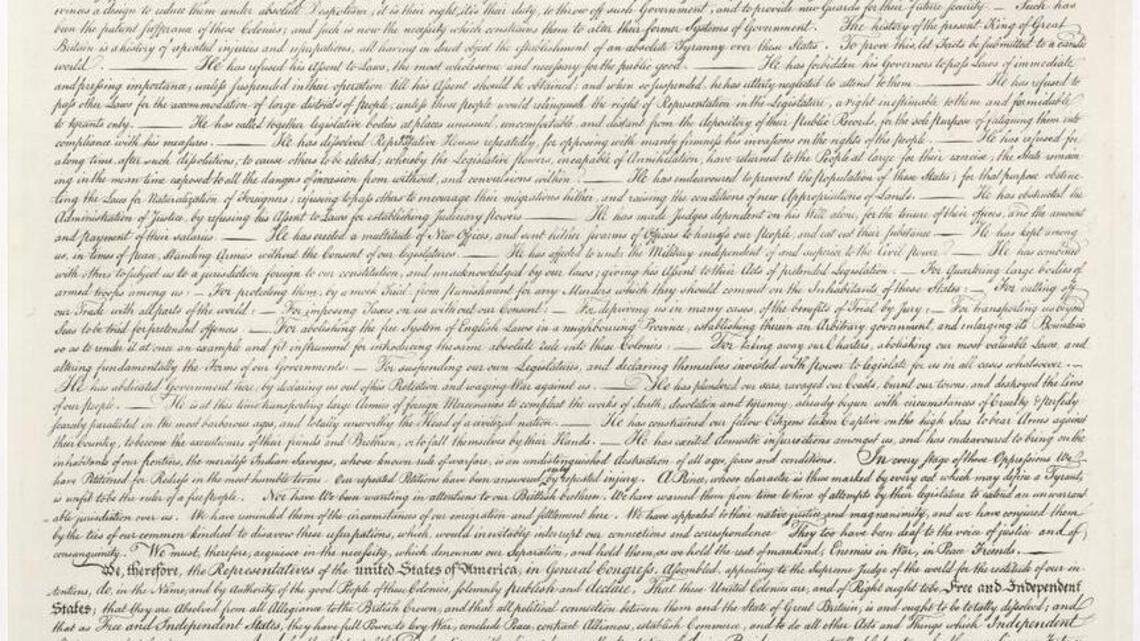 evinces a design to reduce them under absolute Despotism, it is their right, it is their duty, to throw off such Government, and to provide new Guards for their future security. — Such has
been the patient sufferance of these Colonies; and such is now the necessity which constrains them to alter their former Systems of Government. The history of the present King of Great
Britain is a history of repeated injuries and usurpations, all having in direct object the establishment of an absolute Tyranny over these States. To prove this, let Facts be submitted to a candid
world. — He has refused his Assent to Laws, the most wholesome and necessary for the public good. — He has forbidden his Governors to pass Laws of immediate
and pressing importance, unless suspended in their operation till his Assent should be obtained; and when so suspended, he has utterly neglected to attend to them. — He has refused to
pass other Laws for the accommodation of large districts of people, unless those people would relinquish the right of Representation in the Legislature, a right inestimable to them and formidable
to tyrants only. — He has called together legislative bodies at places unusual, uncomfortable, and distant from the depository of their public Records, for the sole purpose of fatiguing them into
compliance with his measures. — He has dissolved Representative Houses repeatedly, for opposing with manly firmness his invasions on the rights of the people. — He has refused for
a long time, after such dissolutions, to cause others to be elected; whereby the Legislative powers, incapable of Annihilation, have returned to the People at large for their exercise; the State remain
ing in the mean time exposed to all the dangers of invasion from without, and convulsions within. — He has endeavoured to prevent the Population of these States; for that purpose obstruc
ting the Laws for Naturalization of Foreigners; refusing to pass others to encourage their migrations hither, and raising the conditions of new Appropriations of Lands. — He has obstructed the
Administration of Justice, by refusing his Assent to Laws for establishing Judiciary powers. — He has made Judges dependent on his Will alone, for the tenure of their offices, and the amount
and payment of their salaries. — He has erected a multitude of New Offices, and sent hither swarms of Officers to harass our people, and eat out their substance. — He has kept among
us, in times of peace, Standing Armies without the Consent of our legislatures. — He has affected to render the Military independent of and superior to the Civil power. — He has combined
with others to subject us to a jurisdiction foreign to our constitution, and unacknowledged by our laws; giving his Assent to their Acts of pretended Legislation: — For Quartering large bodies of
armed troops among us: — For protecting them, by a mock Trial, from punishment for any Murders which they should commit on the Inhabitants of these States: — For cutting off
our Trade with all parts of the world: — For imposing Taxes on us without our Consent: — For depriving us in many cases, of the benefits of Trial by Jury: — For transporting us beyond
Seas to be tried for pretended offences — For abolishing the free System of English Laws in a neighbouring Province, establishing therein an Arbitrary government, and enlarging its Boundaries
so as to render it at once an example and fit instrument for introducing the same absolute rule into these Colonies: — For taking away our Charters, abolishing our most valuable Laws, and
altering fundamentally the Forms of our Governments: — For suspending our own Legislatures, and declaring themselves invested with power to legislate for us in all cases whatsoever. —
He has abdicated Government here, by declaring us out of his Protection and waging War against us. — He has plundered our seas, ravaged our Coasts, burnt our towns, and destroyed the lives
of our people. — He is at this time transporting large Armies of foreign Mercenaries to compleat the works of death, desolation and tyranny, already begun with circumstances of Cruelty & perfidy
scarcely paralleled in the most barbarous ages, and totally unworthy the Head of a civilized nation. — He has constrained our fellow Citizens taken Captive on the high Seas to bear Arms against
their Country, to become the executioners of their friends and Brethren, or to fall themselves by their Hands. — He has excited domestic insurrections amongst us, and has endeavoured to bring on the
inhabitants of our frontiers, the merciless Indian Savages, whose known rule of warfare, is an undistinguished destruction of all ages, sexes and conditions. In every stage of these Oppressions We
have Petitioned for Redress in the most humble terms: Our repeated Petitions have been answered only by repeated injury. A Prince, whose character is thus marked by every act which may define a Tyrant,
is unfit to be the ruler of a free people. Nor have We been wanting in attentions to our Brittish brethren. We have warned them from time to time of attempts by their legislature to extend an unwarrant
able jurisdiction over us. We have reminded them of the circumstances of our emigration and settlement here. We have appealed to their native justice and magnanimity, and we have conjured them
by the ties of our common kindred to disavow these usurpations, which, would inevitably interrupt our connections and correspondence. They too have been deaf to the voice of justice and of
consanguinity. We must, therefore, acquiesce in the necessity, which denounces our Separation, and hold them, as we hold the rest of mankind, Enemies in War, in Peace Friends. —
We, therefore, the Representatives of the united States of America, in General Congress, Assembled, appealing to the Supreme Judge of the world for the rectitude of our in
tentions, do, in the Name, and by Authority of the good People of these Colonies, solemnly publish and declare, That these United Colonies are, and of Right ought to be Free and Independent
States; that they are Absolved from all Allegiance to the British Crown, and that all political connection between them and the State of Great Britain, is and ought to be totally dissolved; and
that as Free and Independent States, they have full Power to levy War, conclude Peace, contract Alliances, establish Commerce, and to do all other Acts and Things which Independent